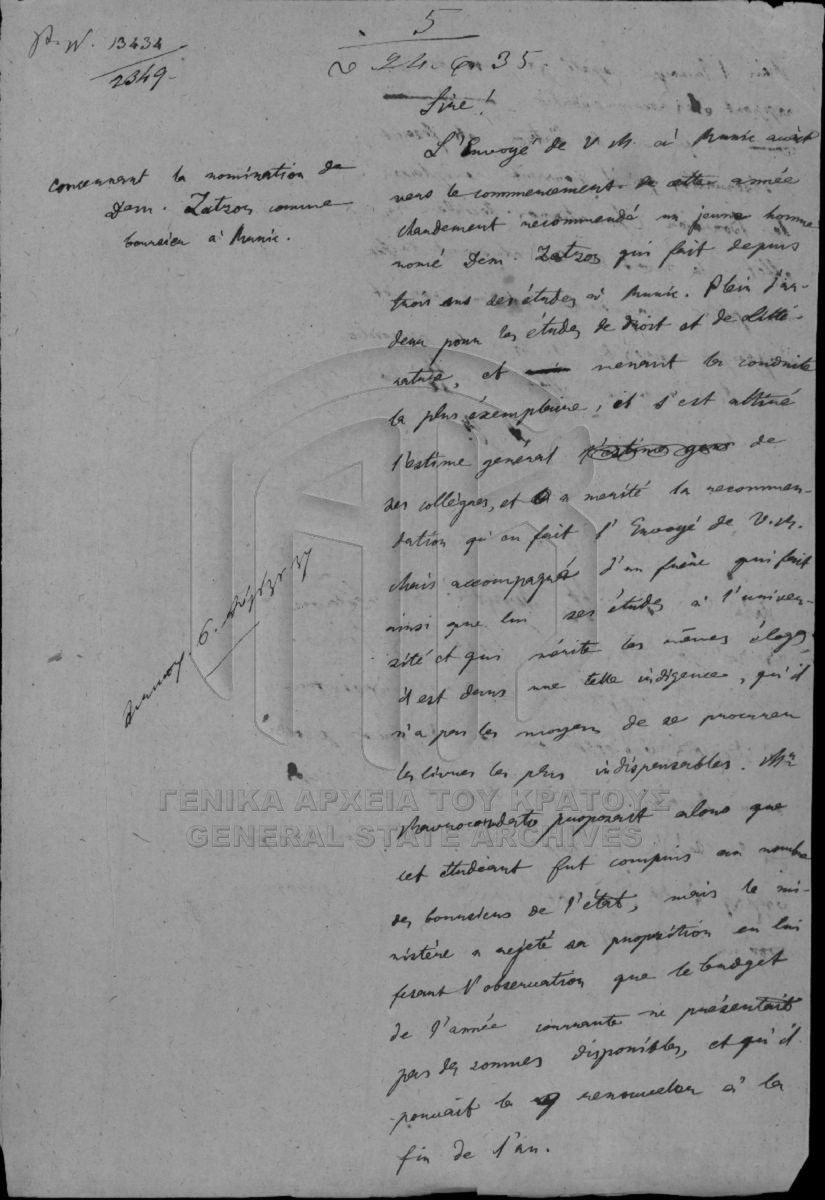 13434
2349
5
24 35
Sire!
L'Envoyé de V. M. à Munic avait
vers le commencement de cette année
chaudement recommendé un jeune homme
nomé Dem. Zatzos qui fait depuis
trois ans ses études à Munic. Plein d'ar-
deur pour les études de droit et de Litté-
rature, et menant la conduite
la plus éxemplaire, il s'est attiré
l'estime général de
ses collègues, et a merité la recommen-
dation qu'en fait l'Envoyé de V. M.
Mais accompagné d'un frère qui fait
ainsi que lui ses études à l'univer-
sité et qui mérite les mêmes éloges,
il est dans une telle indigence, qu'il
n'a pas les moyens de se procurer
les livres les plus indispensables. Mr
Mavrocordato proposait alors que
cet étudiant fut compris au nombre
des boursiers de l'état, mais le mi-
nistère a rejeté sa proposition en lui
fesant l'observation que le budget
de l'année courrante ne présentait
pas des sommes disponibles, et qu'il
pouvait la renouveler à la
fin de l'an.
concernant la nomination de
Dem. Zatzos comme
boursier à Munic.
ΓΕΝΙΚΑ ΑΡΧΕΙΑ ΤΟΥ ΚΡΑΤΟΥΣ
GENERAL STATE ARCHIVES